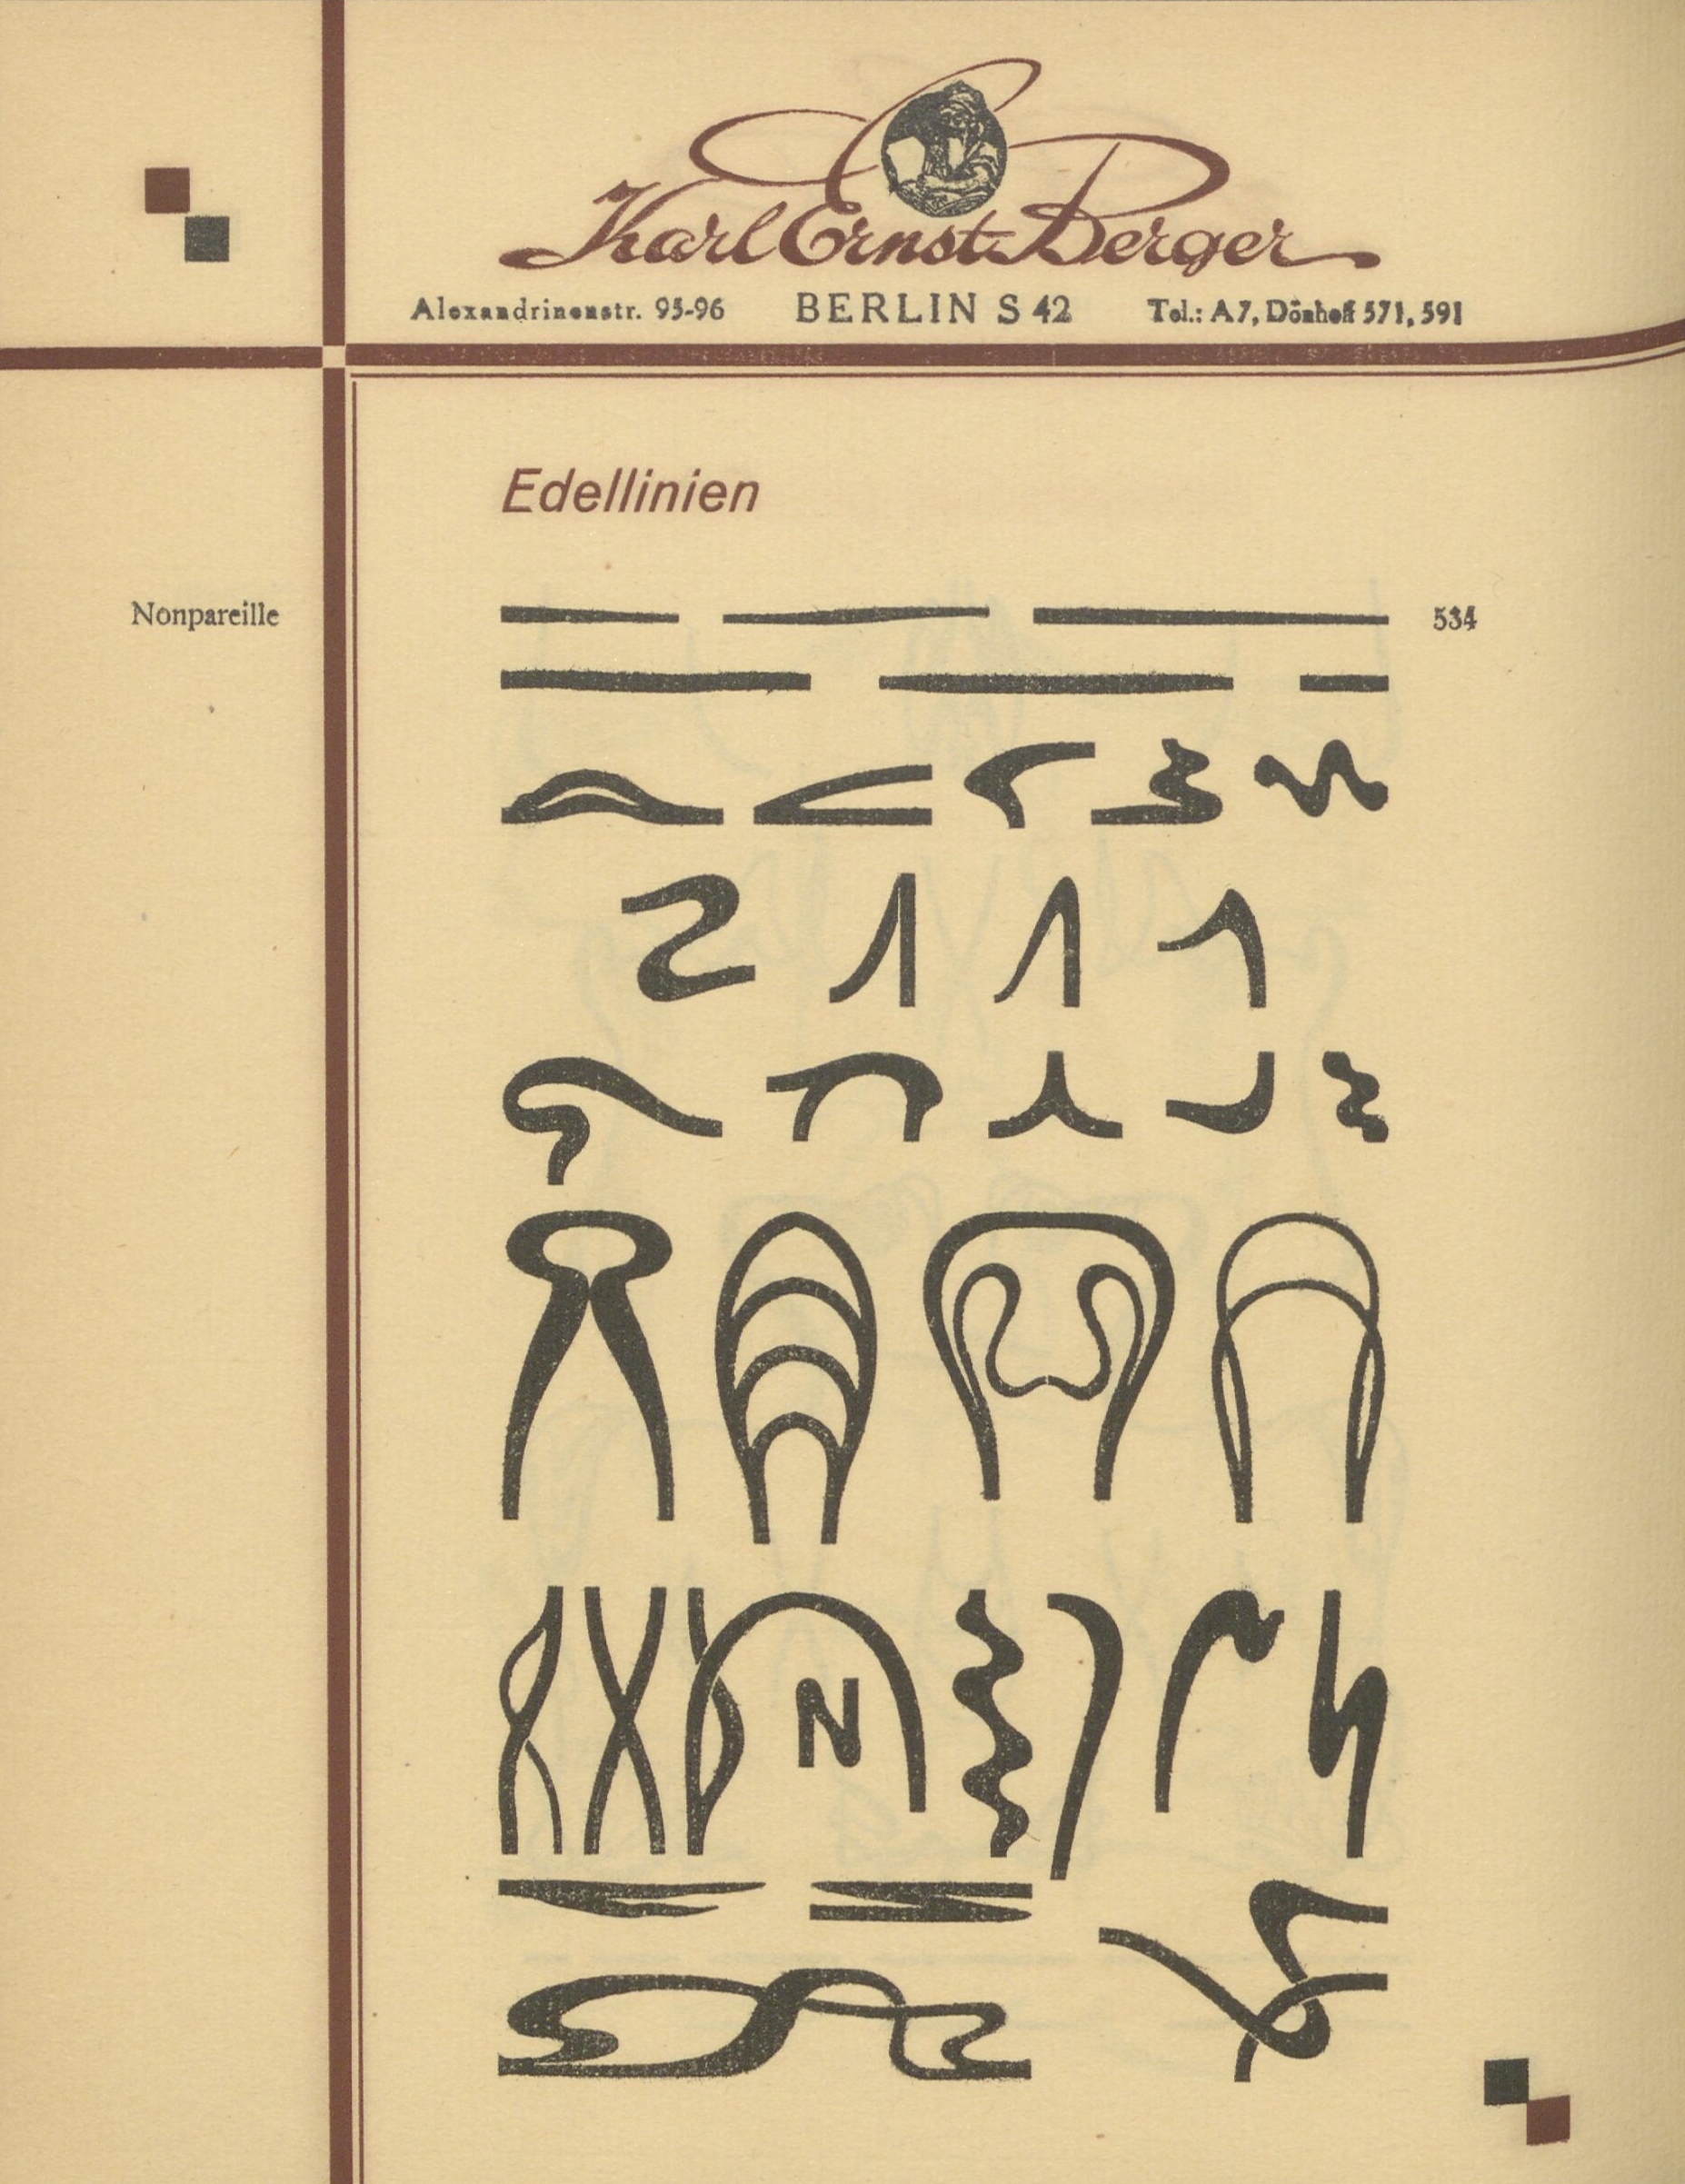 Karl Ernst Berger
Alexandrinenstr. 95-96 BERLIN S 42 Tel.: A7, Dönhoff 571, 591
Edellinien
Nonpareille 534